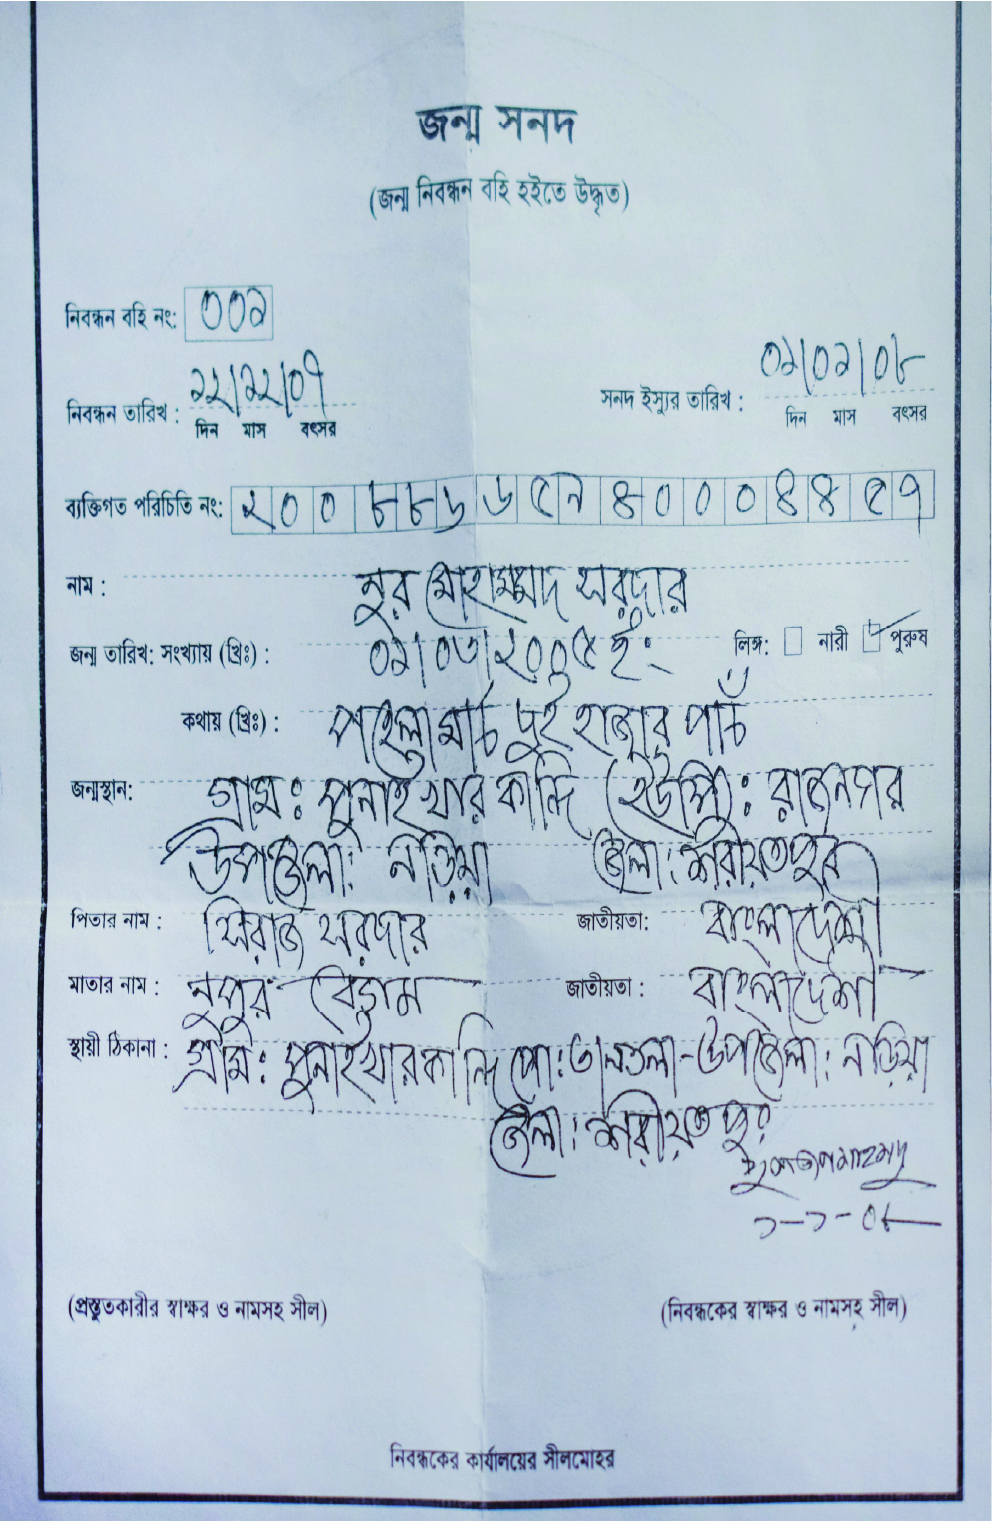 জন্ম সনদ
(জন্ম নিবন্ধন বহি হইতে উদ্ধৃত)
নিবন্ধন বহি নং: ০০১
নিবন্ধন তারিখ : ১২/১২/০৭
দিন মাস বৎসর
সনদ ইস্যুর তারিখ : ০১/০১/০৮
দিন মাস বৎসর
ব্যক্তিগত পরিচিতি নং:
নাম : নুর মোহাম্মাদ সরদার
জন্ম তারিখ: সংখ্যায় (খ্রিঃ) : ০১/০৩/২০০৫ইং লিঙ্গ: নারী পুরুষ
কথায় (খ্রিঃ) : পহেলা মার্চ দুই হাজার পাঁচ
জন্মস্থান: গ্রাম: পুনাইখার কান্দি ইউপি: রাজনগর
উপজেলা: নড়িয়া জেলা: শরীয়তপুর
পিতার নাম : সিরাজ সরদার জাতীয়তা: বাংলাদেশী
মাতার নাম : নুপুর বেগম জাতীয়তা : বাংলাদেশী
স্থায়ী ঠিকানা : গ্রাম: পুনাইখারকান্দি পো: উপজেলা: নড়িয়া
জেলা: শরীয়তপুর
১-১-০৮
(প্রস্তুতকারীর স্বাক্ষর ও নামসহ সীল) (নিবন্ধকের স্বাক্ষর ও নামসহ সীল)
নিবন্ধকের কার্যালয়ের সীলমোহর